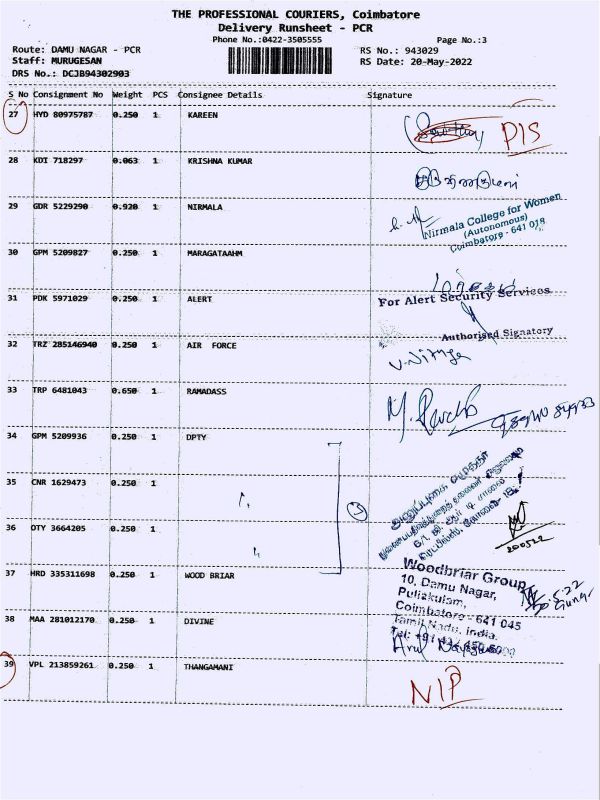 THE PROFESSIONAL COURIERS, Coimbatore
Delivery Runsheet - PCR
Phone No.:0422-3505555 Page No.:3
Route: DAMU NAGAR - PCR RS No.: 943029
Staff: MURUGESAN RS Date: 20-May-2022
DRS No.: DCJB94302903
S No Consignment No Weight PCS Consignee Details Signature
27 HYD 80975787 0.250 1 KAREEN
PIS
28 KDI 718297 0.063 1 KRISHNA KUMAR
29 GDR 5229290 0.920 1 NIRMALA
Nirmala College for Women
(Autonomous)
Coimbatore - 641 018
30 GPM 5209827 0.250 1 MARAGATAAHM
31 PDK 5971029 0.250 1 ALERT
For Alert Security Services
Authorised Signatory
32 TRZ 285146940 0.250 1 AIR FORCE
33 TRP 6481043 0.650 1 RAMADASS
34 GPM 5209936 0.250 1 DPTY
35 CNR 1629473 0.250 1
36 OTY 3664205 0.250 1
200522
37 HRD 335311698 0.250 1 WOOD BRIAR
Woodbriar Group
10, Damu Nagar,
Puliakulam,
Coimbatore - 641 045
Tamil Nadu, India.
38 MAA 281012170 0.250 1 DIVINE
39 VPL 213859261 0.250 1 THANGAMANI
NIP